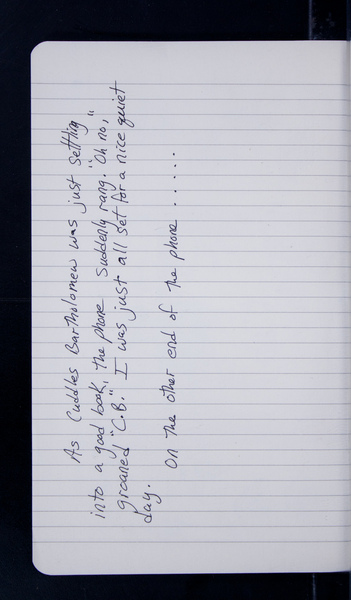 As Cuddles Bartholomew was just settling
into a good book, the phone suddenly rang. "Oh no,"
groaned "C.B." I was just all set for a nice quiet
day.
On the other end of the phone ......